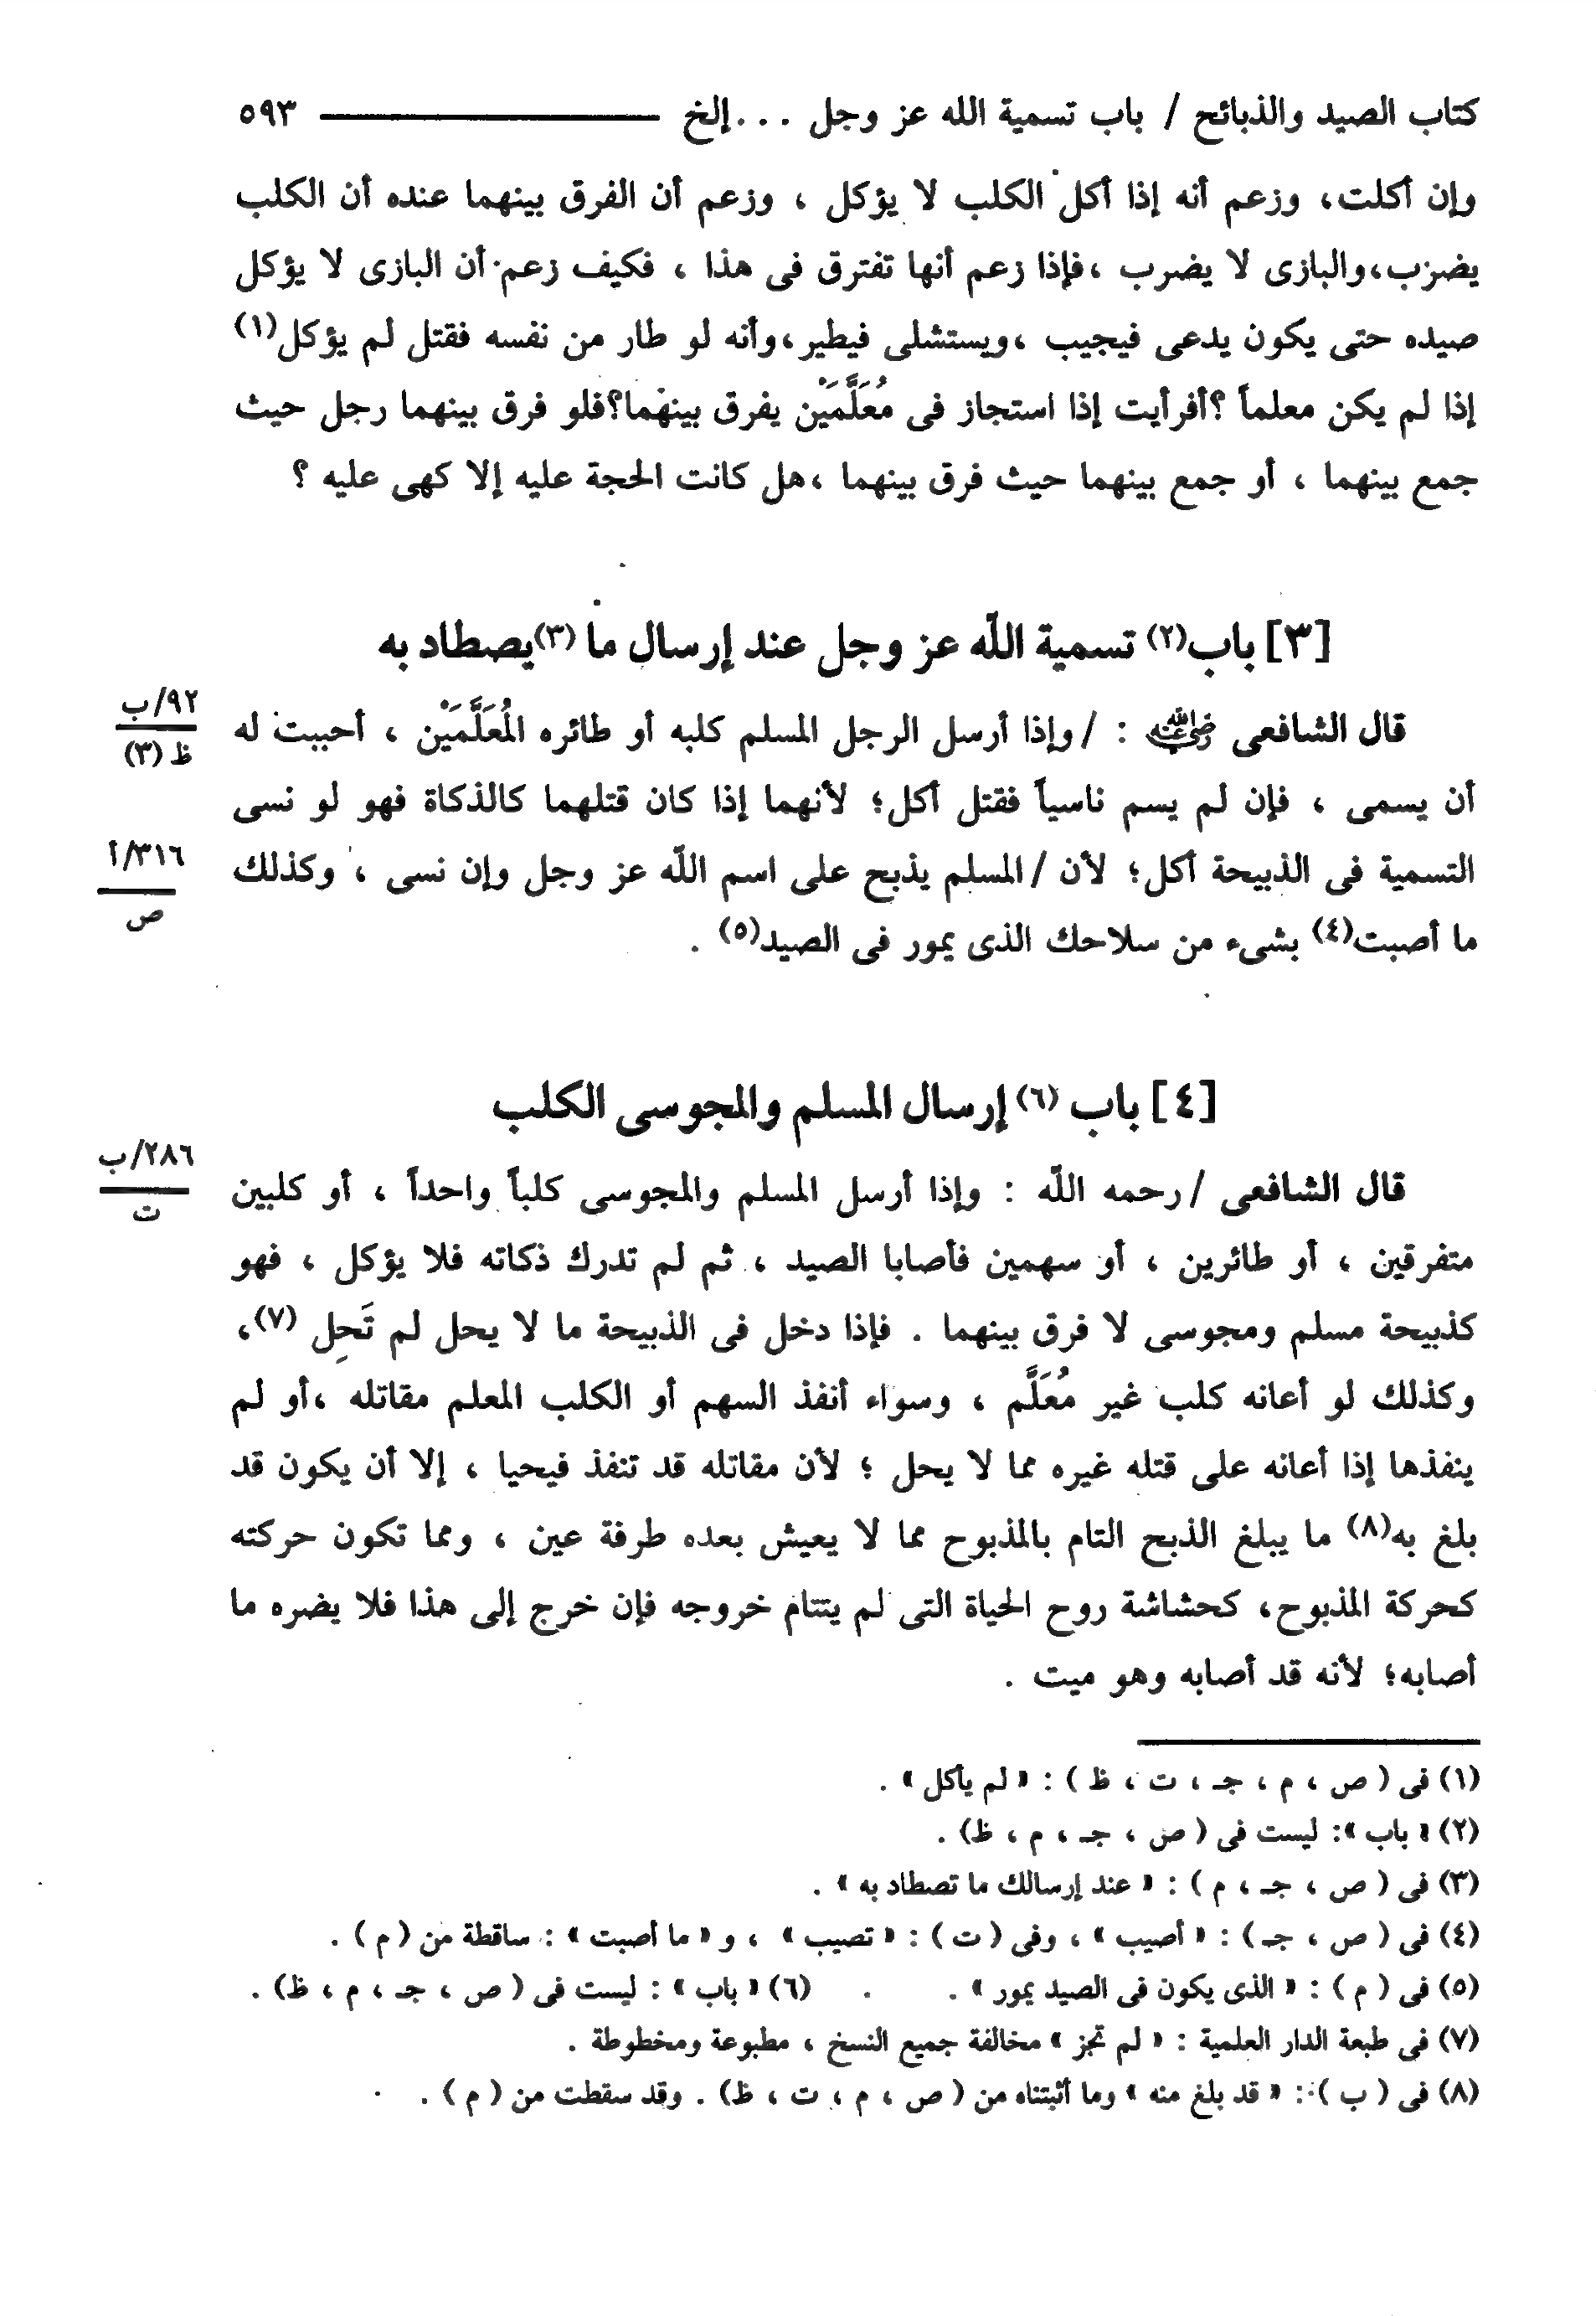 كتاب الصيد والذبائح / باب تسمية الله عز وجل ... إلخ ٥٩٣
وإن أكلت، وزعم أنه إذا أكل الكلب لا يؤكل ، وزعم أن الفرق بينهما عنده أن الكلب
يضرب،والبازى لا يضرب ،فإذا زعم أنها تفترق فى هذا ، فكيف زعم أن البازى لا يؤكل
صيده حتى يكون يدعى فيجيب ،ويستشلى فيطير،وأنه لو طار من نفسه فقتل لم يؤكل(١)
إذا لم يكن معلماً ؟أفرأيت إذا استجاز فى مُعَلَّمَيْن يفرق بينهما؟فلو فرق بينهما رجل حيث
جمع بينهما ، أو جمع بينهما حيث فرق بينهما ،هل كانت الحجة عليه إلا كهى عليه ؟
[٣] باب(٢) تسمية اللّه عز وجل عند إرسال ما (٣)يصطاد به
قال الشافعى رضي الله عنه : / وإذا أرسل الرجل المسلم كلبه أو طائره المُعَلَّمَيْن ، أحببت له
٩٢/ب
ظ (٣)
أن يسمى ، فإن لم يسم ناسياً فقتل أكل؛ لأنهما إذا كان قتلهما كالذكاة فهو لو نسى
التسمية فى الذبيحة أكل؛ لأن / المسلم يذبح على اسم اللّه عز وجل وإن نسى ، وكذلك
٣١٦/أ
ص
ما أصبت(٤) بشىء من سلاحك الذى يمور فى الصيد(٥) .
[٤] باب (٦) إرسال المسلم والمجوسى الكلب
قال الشافعى / رحمه اللّه : وإذا أرسل المسلم والمجوسى كلباً واحداً ، أو كلبين
٢٨٦/ب
ت
متفرقين ، أو طائرين ، أو سهمين فأصابا الصيد ، ثم لم تدرك ذكاته فلا يؤكل ، فهو
كذبيحة مسلم ومجوسى لا فرق بينهما . فإذا دخل فى الذبيحة ما لا يحل لم تَحِل (٧)،
وكذلك لو أعانه كلب غير مُعَلَّم ، وسواء أنفذ السهم أو الكلب المعلم مقاتله ،أو لم
ينفذها إذا أعانه على قتله غيره مما لا يحل ؛ لأن مقاتله قد تنفذ فيحيا ، إلا أن يكون قد
بلغ به(٨) ما يبلغ الذبح التام بالمذبوح مما لا يعيش بعده طرفة عين ، ومما تكون حركته
كحركة المذبوح، كحشاشة روح الحياة التى لم يتتام خروجه فإن خرج إلى هذا فلا يضره ما
أصابه؛ لأنه قد أصابه وهو ميت .
(١) فى ( ص ، م ، جـ ، ت ، ظ ) : « لم يأكل » .
(٢) « باب »: ليست فى ( ص ، جـ ، م ، ظ) .
(٣) فى ( ص ، جـ ، م ) : « عند إرسالك ما تصطاد به » .
(٤) فى ( ص ، جـ ) : « أصيب » ، وفى ( ت ) : « تصيب » ، و « ما أصبت » : ساقطة من ( م ) .
(٥) فى ( م ) : « الذى يكون فى الصيد يمور » . (٦) « باب » : ليست فى ( ص ، جـ ، م ، ظ) .
(٧) فى طبعة الدار العلمية : « لم تجز » مخالفة جميع النسخ ، مطبوعة ومخطوطة .
(٨) فى ( ب ) : « قد بلغ منه » وما أثبتناه من ( ص ، م ، ت ، ظ) . وقد سقطت من ( م ) .